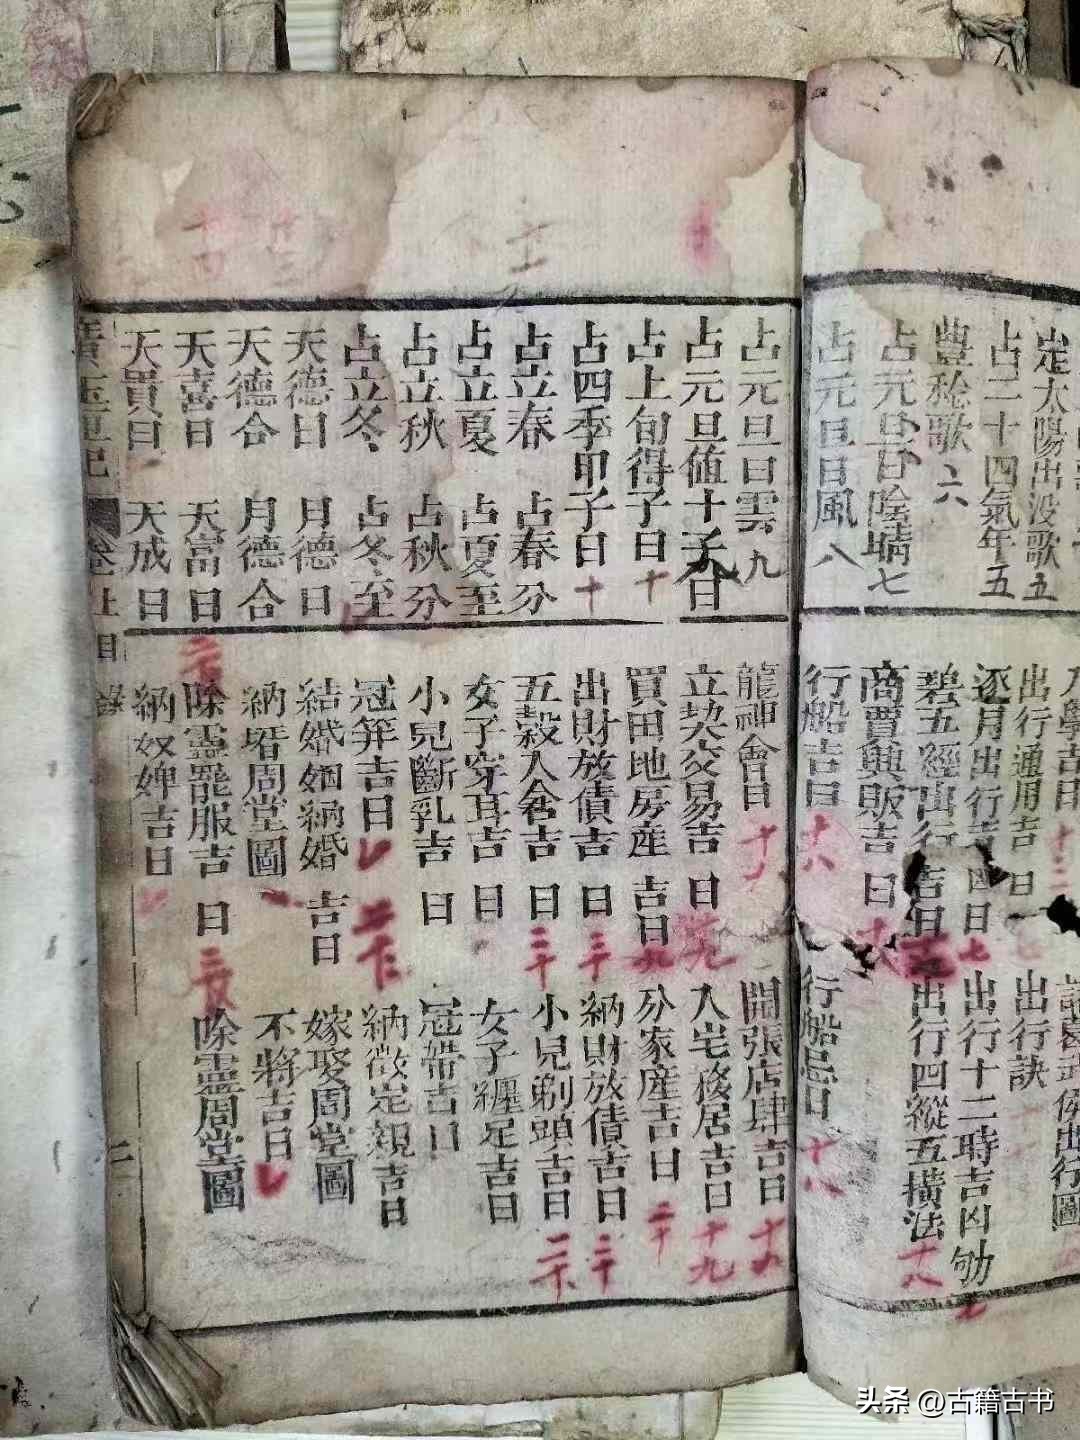 定太陽出没歌 五
占二十四氣年 五
豊稔歌 六
占元旦日陰晴 七
占元旦日風 八
出行通用吉日
出行訣
逐月出行吉凶日 七
出行十二時吉凶
碧五經出行吉日
出行四縱五橫法 十八
商賈興販吉日
行船吉日 十八
行船忌日 十八
占元旦日雲 九
占元旦值十子日
占上旬得子日 十
占四季甲子日 十
占立春 占春分
占立夏 占夏至
占立秋 占秋分
占立冬 占冬至
天德日 月德日
天德合 月德合
天喜日 天富日
天貴日 天成日
龍神會日
開張店肆吉日 十九
立契交易吉日
入宅移居吉日 十九
買田地房産吉日
分家産吉日 二十
出財放債吉日 二十
納財放債吉日 二十
五穀入倉吉日 二十
小兒剃頭吉日 二十
女子穿耳吉日
女子纏足吉日
小兒斷乳吉日
冠帶吉日
冠笄吉日
納徵定親吉日
結婚姻納婚吉日
嫁娶周堂圖
納壻周堂圖
不將吉日
除靈罷服吉日
除靈周堂圖
納奴婢吉日
卷上目錄
二
头条 @古籍古书